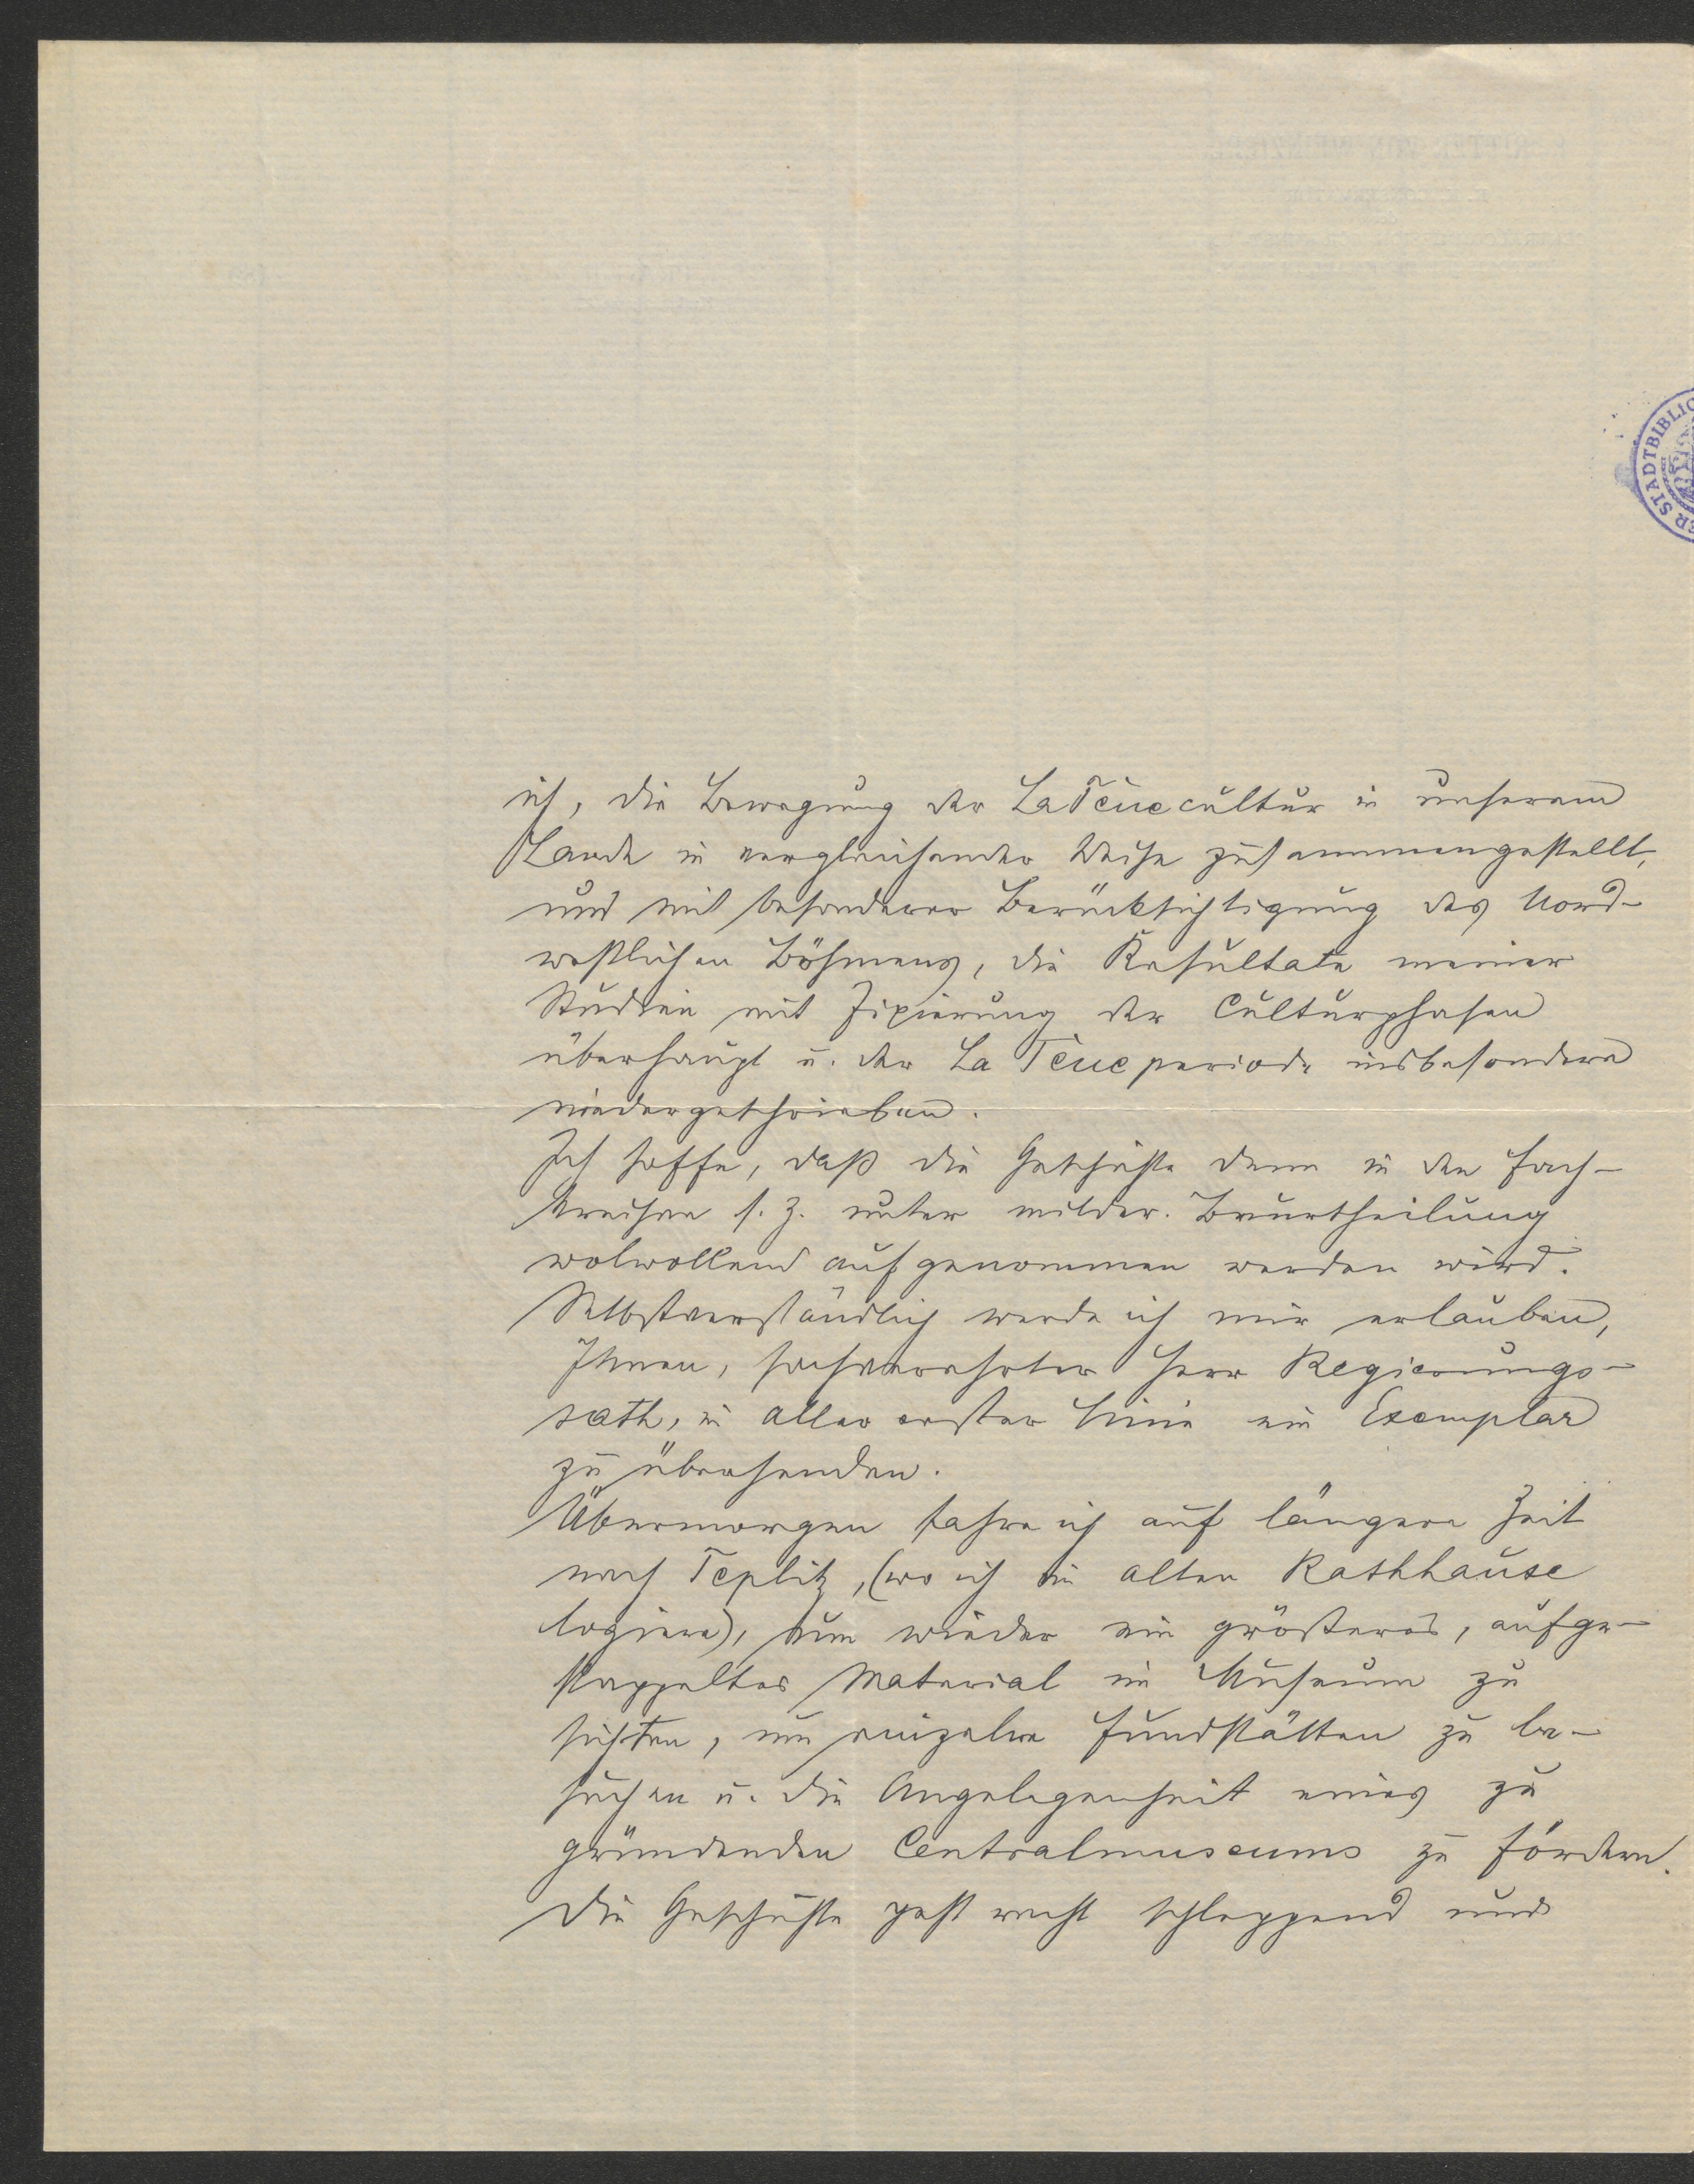 ich, die Bewegung der La Tènecultur in unserem
Lande in vergleichender Weise zusammengestellt,
und mit besonderer Berücksichtigung des Nord-
westlichen Böhmens, die Resultate meiner
Studien mit Fixierung der Culturphasen
überhaupt u. der La Tèneperiode insbesondere
niedergeschrieben.
Ich hoffe, daß die Geschichte denn in den Fach-
kreisen s. Z. unter milder Beurtheilung
wolwollend aufgenommen werden wird.
Selbstverständlich werde ich mir erlauben,
Ihnen, hochverehrter Herr Regierungs-
rath, in aller erster Linie ein Exemplar
zu übersenden.
Übermorgen fahre ich auf längere Zeit
nach Teplitz, (wo ich im alten Rathhause
logiere), um wieder ein größeres, aufge-
stappeltes Material im Museum zu
sichten, um einzelne Fundstätten zu be-
suchen u. die Angelegenheit eines zu
gründenden Centralmuseums zu fördern.
Die Geschichte geht recht schleppend und
STADTBIBLIO